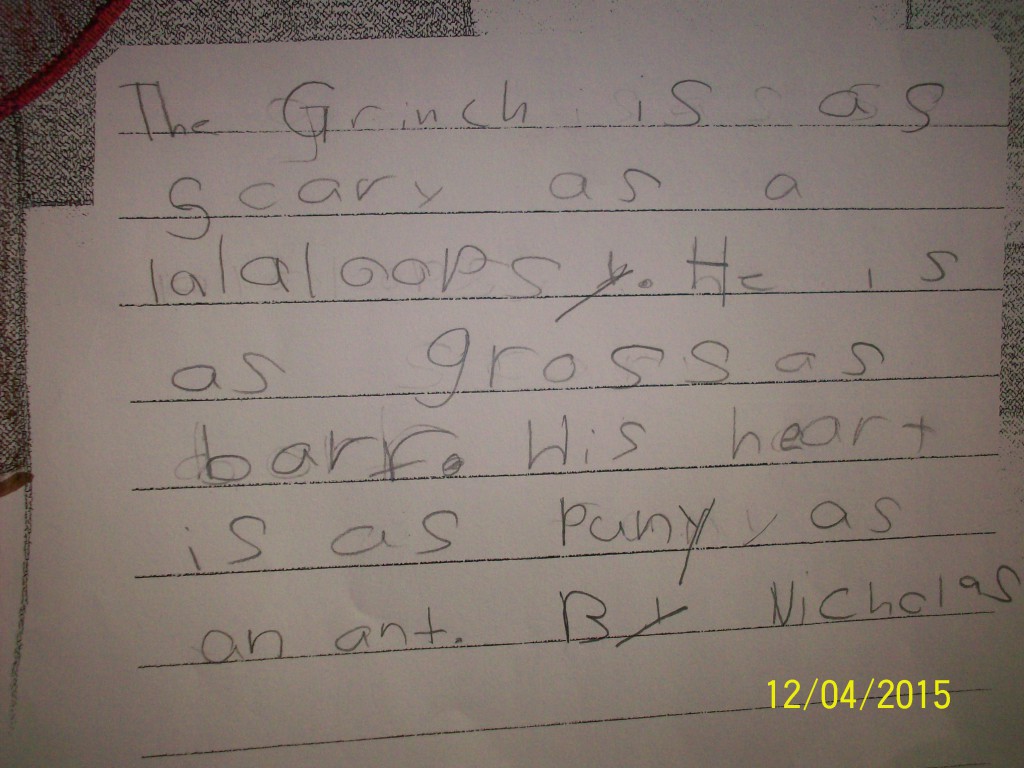 The Grinch is as
scary as a
lalaloopsy. He is
as gross as
barf. His heart
is as puny as
an ant. By Nicholas
12/04/2015